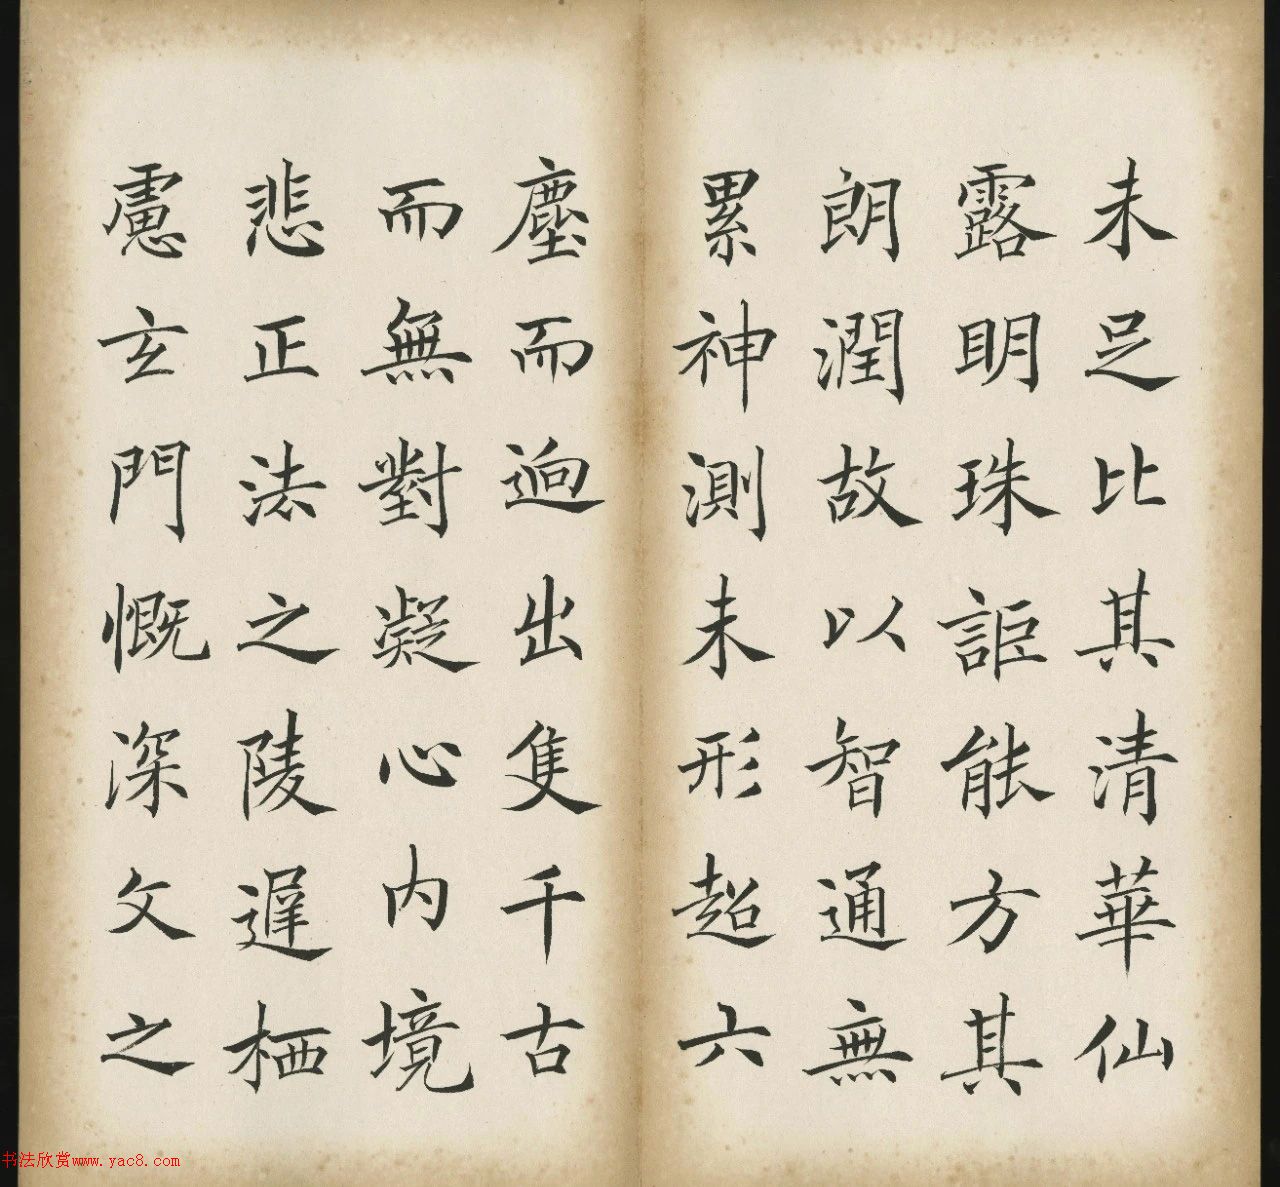 未足比其清華仙
露明珠詎能方其
朗潤故以智通無
累神測未形超六
塵而迥出隻千古
而無對凝心內境
悲正法之陵遲栖
慮玄門慨深文之
书法欣赏www.yac8.com